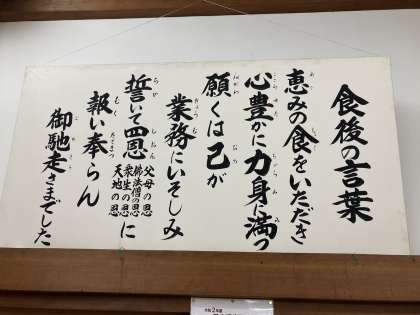 食後の言葉
恵みの食をいただき
心豊かに力身に満つ
願くは己が
業務にいそしみ
誓いて四恩
父母の恩
衆生の恩
天地の恩
に
報い奉らん
御馳走さまでした
令和2年度